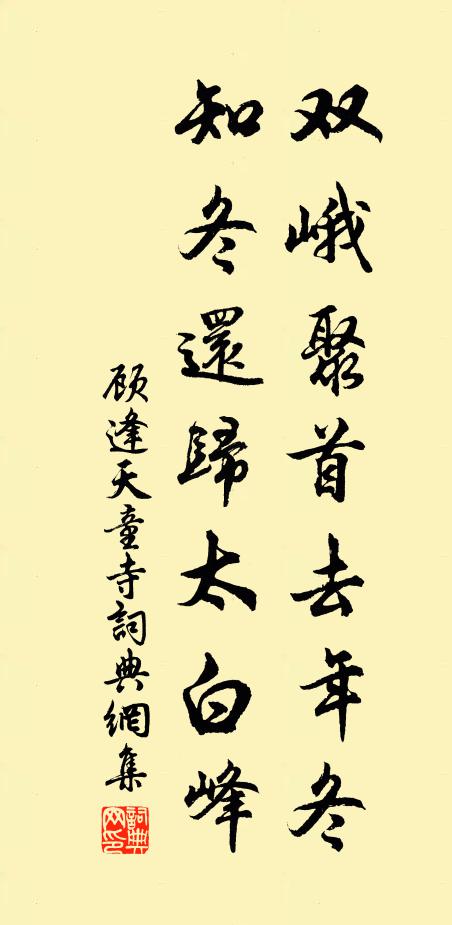 双峨聚首去年冬
知冬還歸太白峰
顾逢天童寺詞典網集
詞典网印